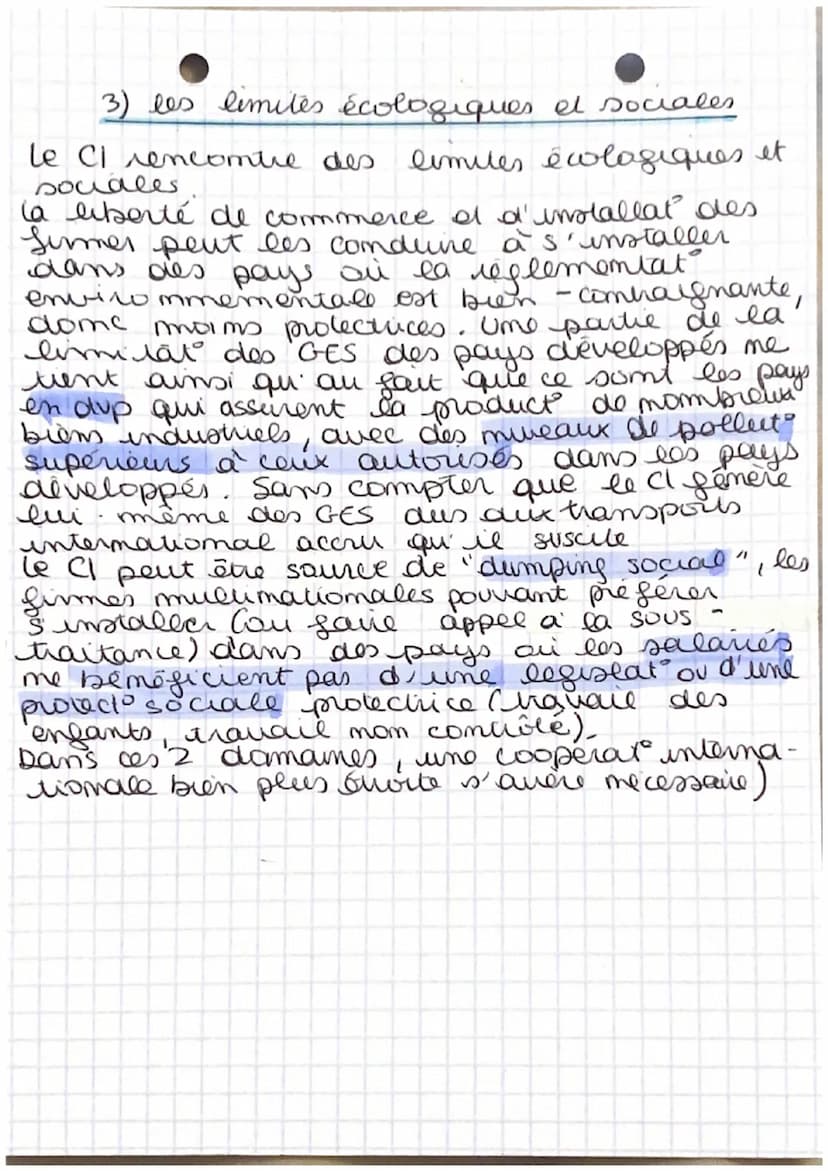 3) les limites écologiques et sociales
Le CI rencontre des limites écologiques et
sociales
La liberté de commerce et d'installat° des
firmes peut les conduire à s'installer
dans des pays où la réglementat°
environnementale est bien - contraignante,
donc moins protectrices. Une partie de la
limitat° des GES des pays développés ne
tient ainsi qu'au fait que ce sont les pays
en dvp qui assurent la product° de nombreux
biens industriels, avec des niveaux de pollut°
supérieurs à ceux autorisés dans les pays
développés. Sans compter que le CI génère
lui-même des GES dus aux transports
international accru qu'il suscite
Le CI peut être source de "dumping social", les
firmes multinationales pouvant préférer
s'installer (ou faire appel à la sous-
traitance) dans des pays où les salariés
ne bénéficient pas d'une législat° ou d'une
protect° sociale protectrice (travail des
enfants, travail non contrôlé).
Dans ces 2 domaines, une coopérat° interna-
tionale bien plus étroite s'avère nécessaire)